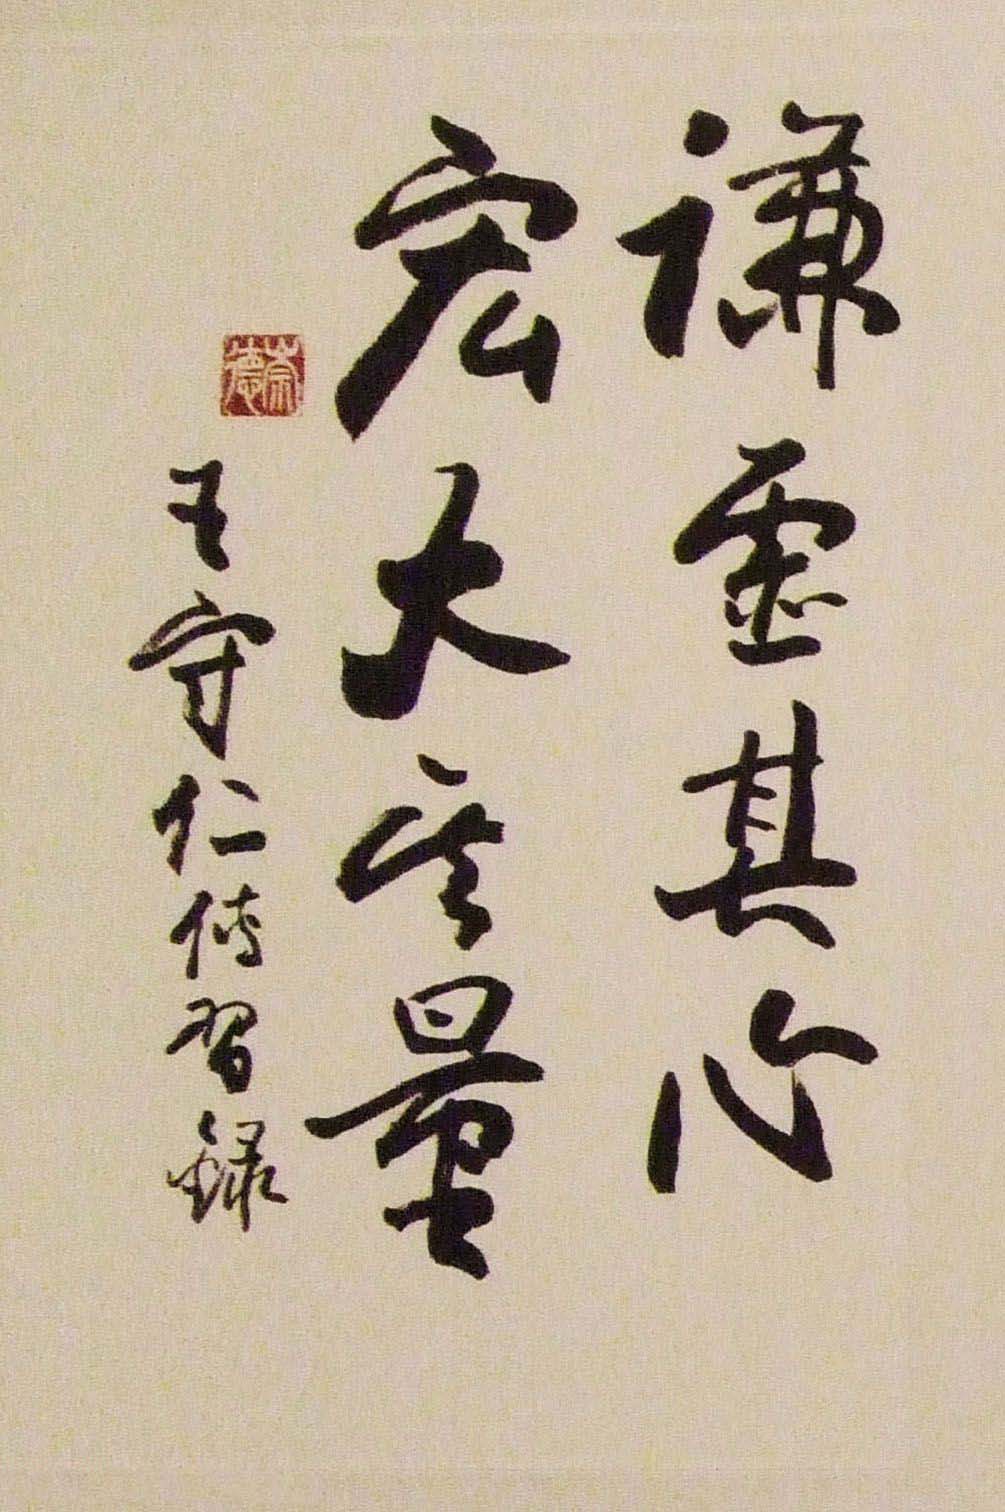 謙虛其心
宏大其量
王守仁傳習錄
崇德